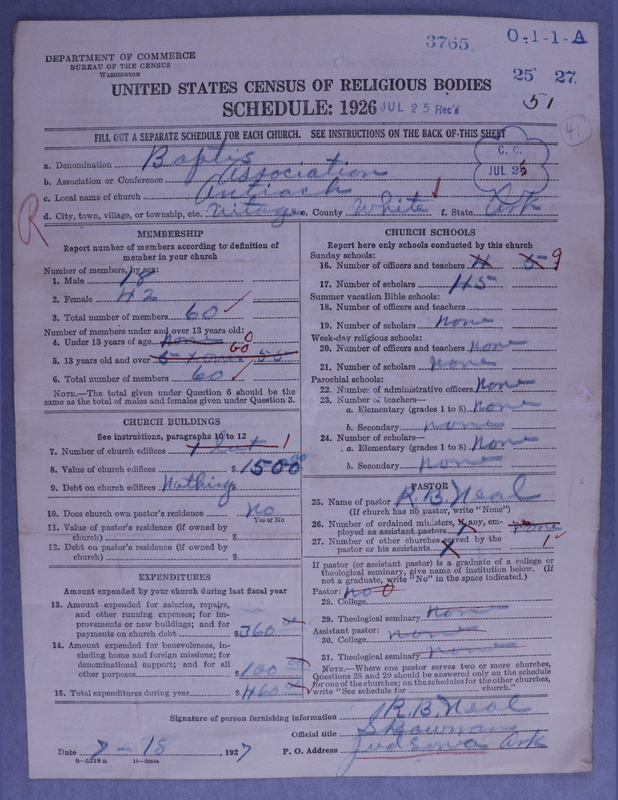 3765.
O-1-1-A
DEPARTMENT OF COMMERCE
BUREAU OF THE CENSUS
WASHINGTON
25 27.
UNITED STATES CENSUS OF RELIGIOUS BODIES
51
SCHEDULE: 1926 JUL 25 Rec'd
41
FILL OUT A SEPARATE SCHEDULE FOR EACH CHURCH. SEE INSTRUCTIONS ON THE BACK OF THIS SHEET
C. C.
JUL 25
a. Denomination Baptis
b. Association or Conference Association
c. Local name of church Antiach
R
d. City, town, village, or township, etc. e. County White f. State Ark
MEMBERSHIP
Report number of members according to definition of
member in your church
Number of members, by sex:
1. Male 18
2. Female 42
3. Total number of members 60
Number of members under and over 13 years old:
4. Under 13 years of age none 0
5. 13 years old and over 60
6. Total number of members 60
NOTE.—The total given under Question 6 should be the
same as the total of males and females given under Question 3.
CHURCH BUILDINGS
See instructions, paragraphs 10 to 12
7. Number of church edifices 1
8. Value of church edifices $1500 00
9. Debt on church edifices Nothing $
10. Does church own pastor's residence no
Yes or No
11. Value of pastor's residence (if owned by
church) $
12. Debt on pastor's residence (if owned by
church) $
EXPENDITURES
Amount expended by your church during last fiscal year
13. Amount expended for salaries, repairs,
and other running expenses; for im-
provements or new buildings; and for
payments on church debt $360
14. Amount expended for benevolences, in-
cluding home and foreign missions; for
denominational support; and for all
other purposes $100
15. Total expenditures during year $460
CHURCH SCHOOLS
Report here only schools conducted by this church
Sunday schools:
16. Number of officers and teachers 4 5 9
17. Number of scholars 45
Summer vacation Bible schools:
18. Number of officers and teachers
19. Number of scholars none
Week-day religious schools:
20. Number of officers and teachers none
21. Number of scholars none
Parochial schools:
22. Number of administrative officers none
23. Number of teachers—
a. Elementary (grades 1 to 8) none
b. Secondary none
24. Number of scholars—
a. Elementary (grades 1 to 8) none
b. Secondary none
PASTOR
25. Name of pastor R. B. Neal
(If church has no pastor, write "None")
26. Number of ordained ministers, if any, em-
ployed as assistant pastors x none
27. Number of other churches served by the
pastor or his assistants x 1
If pastor (or assistant pastor) is a graduate of a college or
theological seminary, give name of institution below. (If
not a graduate, write "No" in the space indicated.)
Pastor: no 0
28. College
29. Theological seminary none
Assistant pastor: none
30. College
31. Theological seminary none
NOTE.—Where one pastor serves two or more churches,
Questions 28 and 29 should be answered only on the schedule
for one of the churches; on the schedules for the other churches,
write "See schedule for church."
Signature of person furnishing information R. B. Neal
Official title
Date 7-18, 1927 P. O. Address Judsonia Ark
8-5318 a